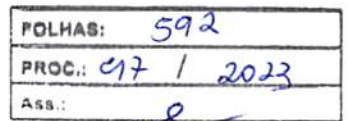 FOLHAS: 592
PROC.: 917 / 2023
Ass.: